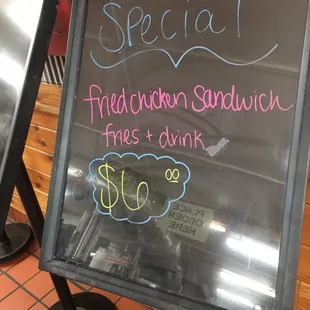 Special
fried chicken Sandwich
fries + drink
$6 00
PLACE
ORDER
HERE